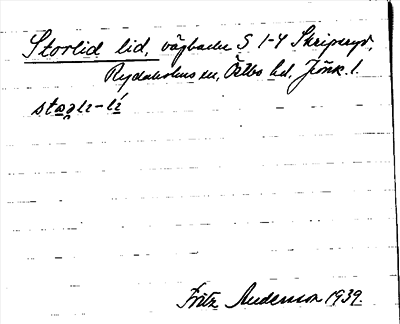 Storlid lid, vägbacke S 1-4 Skripsryd,
Rydaholms sn, Östbo hd, Jönk. l.
Fritz Anderson 1939